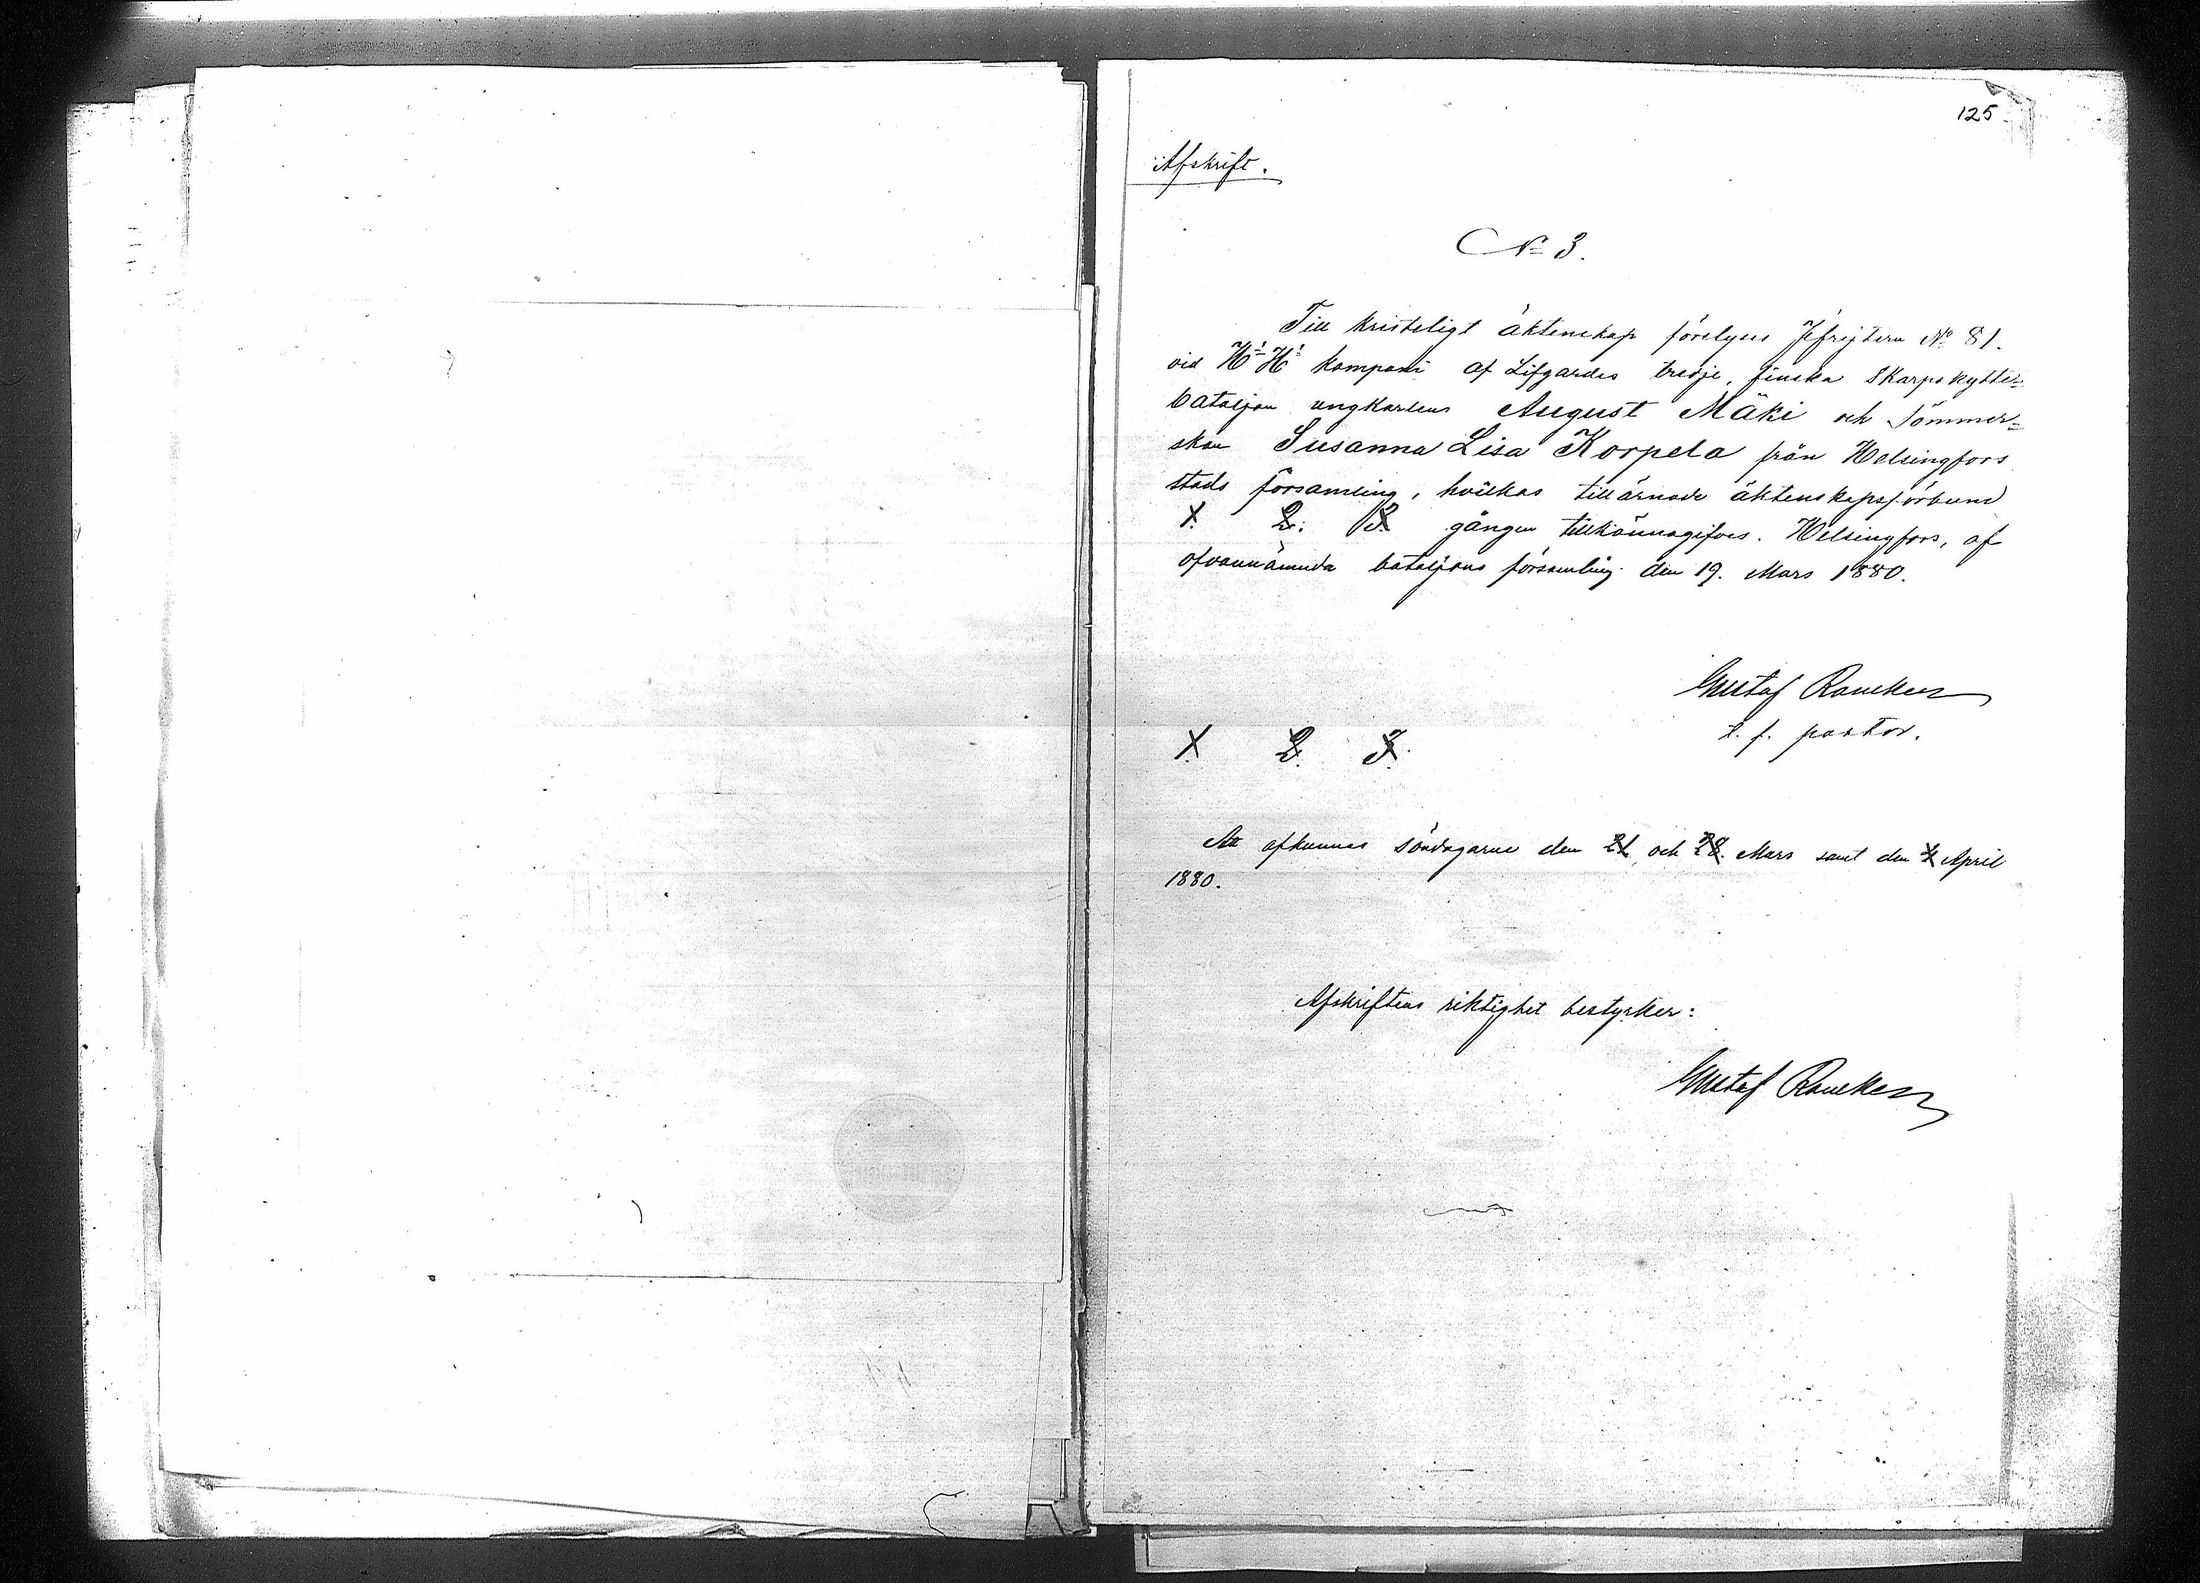 125.
Afskrift.
No 3.
Till kristeligt äktenskap förelyses Jefrejtern No 81.
vid H:s H:s kompani af Lifgardes tredje, finska Skarpskytte=
bataljon ungkarlen August Mäki och Sömmer=
skan Susanna Lisa Korpela från Helsingfors
stads församling, hvilkas tillärnade äktenskapsförbund
1. 2. 3. gången tillkännagifves. Helsingfors, af
ofvannämnda bataljons församling den 19. Mars 1880.
Gustaf Rancken
t. f. pastor.
1. 2. 3.
Att afkunnas söndagarne den 21. och 28. Mars samt den 4 April
1880.
Afskriftens riktighet bestyrker:
Gustaf Rancken